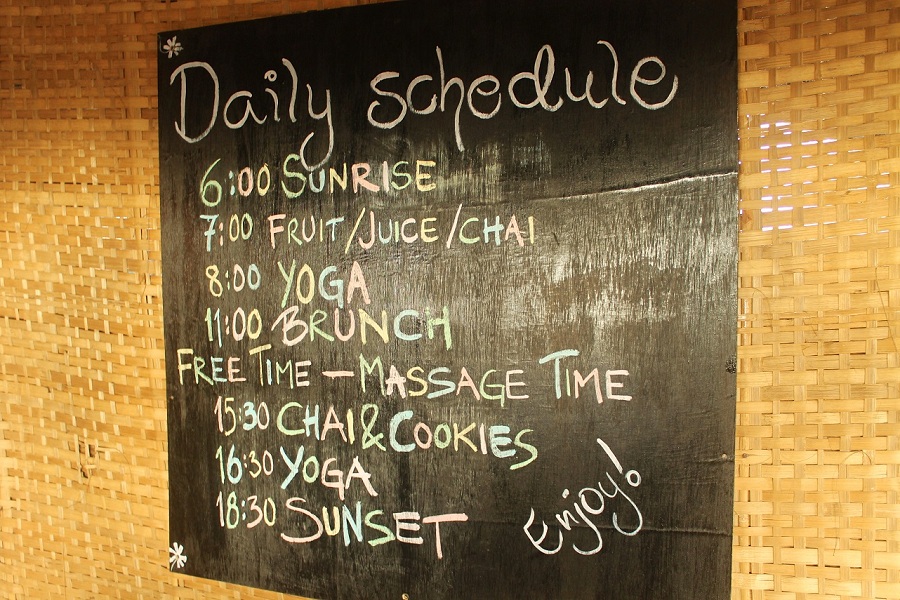 Daily schedule
6:00 SUNRISE
7:00 FRUIT/JUICE/CHAI
8:00 YOGA
11:00 BRUNCH
FREE TIME - MASSAGE TIME
15:30 CHAI & COOKIES
16:30 YOGA
18:30 SUNSET
Enjoy!